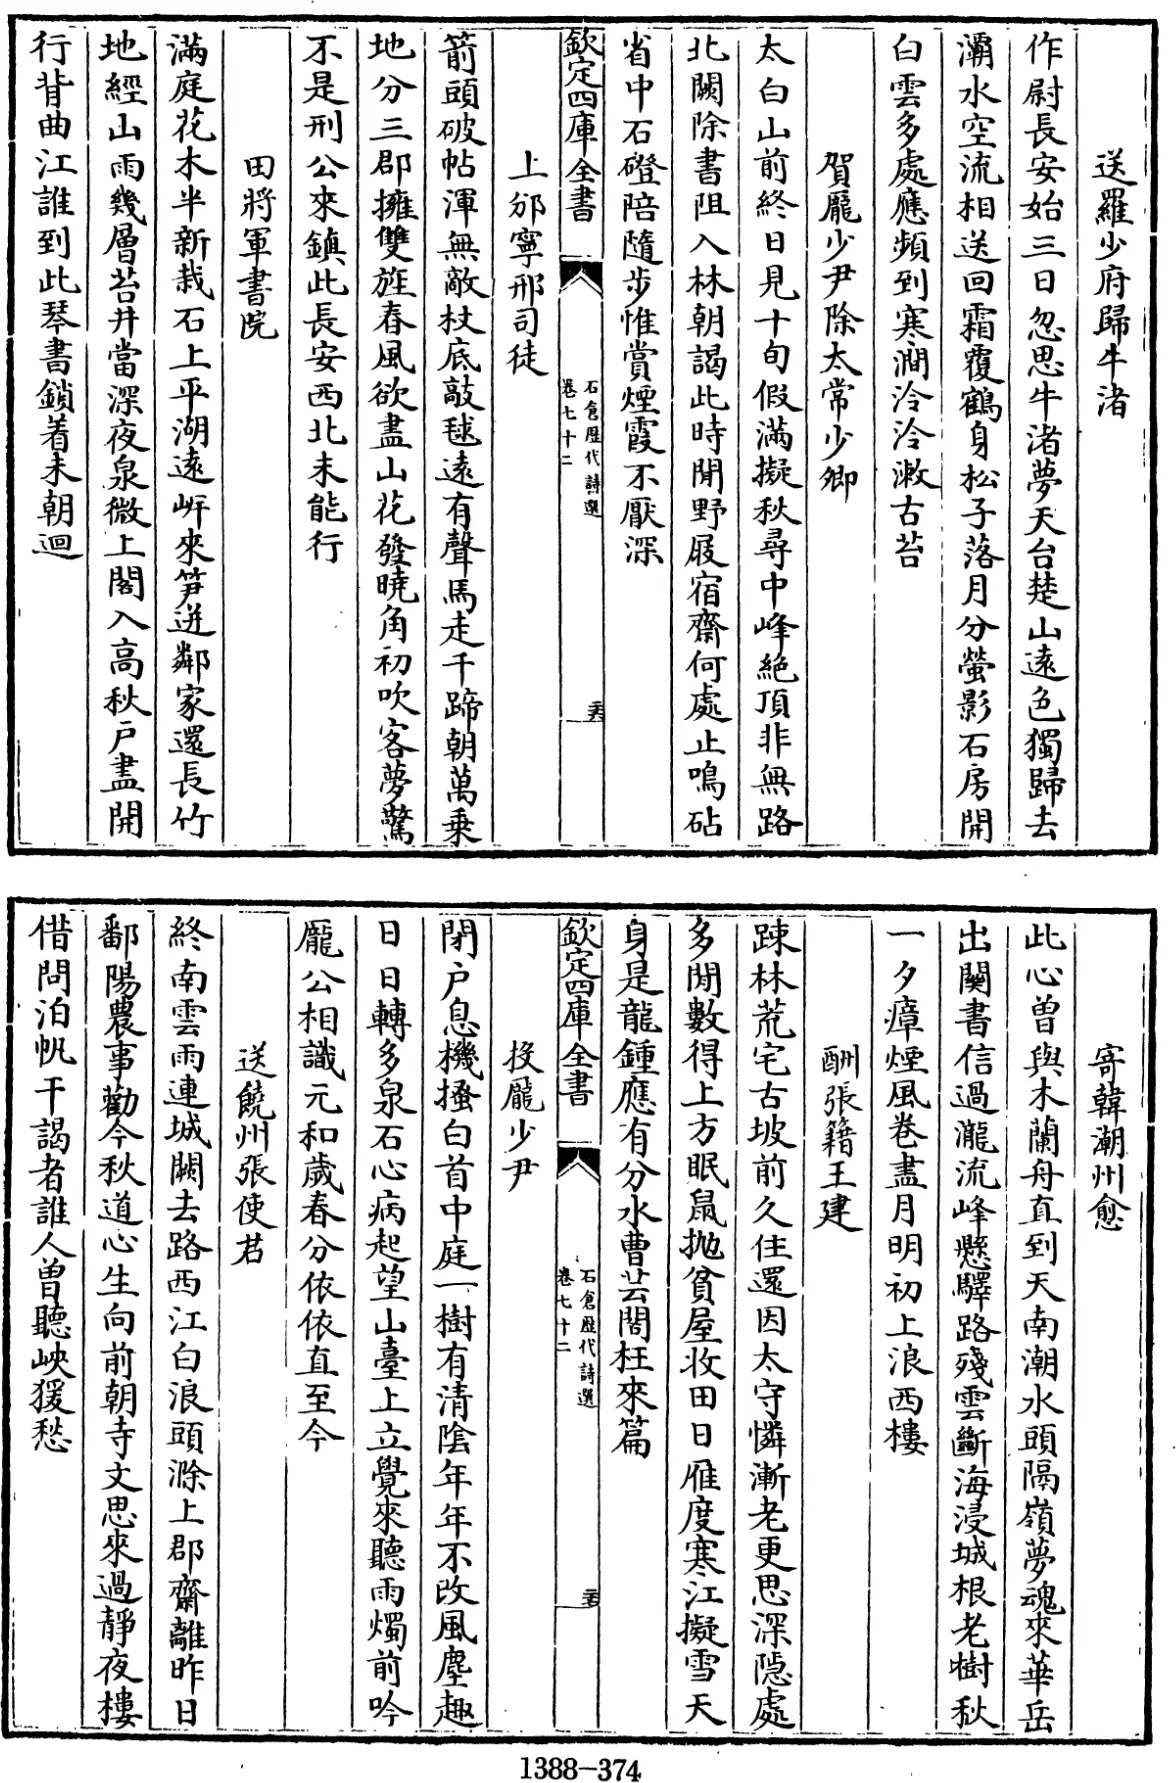 送羅少府歸牛渚
作尉長安始三日忽思牛渚夢天台楚山遠色獨歸去
灞水空流相送回霜覆鶴身松子落月分螢影石房開
白雲多處應頻到寒澗泠泠漱古苔
賀龐少尹除太常少卿
太白山前終日見十旬假滿擬秋尋中峰絶頂非無路
北闕除書阻入林朝謁此時閒野屐宿齋何處止鳴砧
省中石磴陪隨步惟賞煙霞不厭深
欽定四庫全書
石倉歷代詩選
卷七十二
上邠寧邢司徒
箭頭破帖渾無敵杖底敲毬遠有聲馬走千蹄朝萬乗
地分三郡擁雙旌春風欲盡山花發曉角初吹客夢驚
不是刑公來鎮此長安西北未能行
田將軍書院
滿庭花木半新栽石上平湖遠岍來笋迸鄰家還長竹
地經山雨幾層苔井當深夜泉微上閣入高秋户盡開
行背曲江誰到此琴書鎖着未朝迴
寄韓潮州愈
此心曽與木蘭舟直到天南潮水頭隔嶺夢魂來華岳
出關書信過瀧流峰懸驛路殘雲斷海浸城根老樹秋
一夕瘴煙風卷盡月明初上浪西樓
酬張籍王建
踈林荒宅古坡前久住還因太守憐漸老更思深隱處
多閒數得上方眠鼠抛貧屋收田日雁度寒江擬雪天
身是龍鍾應有分水曹芸閣枉來篇
欽定四庫全書
石倉歷代詩選
卷七十二
投龐少尹
閉户息機搔白首中庭一樹有清陰年年不改風塵趣
日日轉多泉石心病起望山臺上立覺來聽雨燭前吟
龐公相識元和歲春分依依直至今
送饒州張使君
終南雲雨連城闕去路西江白浪頭滁上郡齋離昨日
鄱陽農事勸今秋道心生向前朝寺文思來過靜夜樓
借問泊帆干謁者誰人曽聽峽猨愁
1388-374